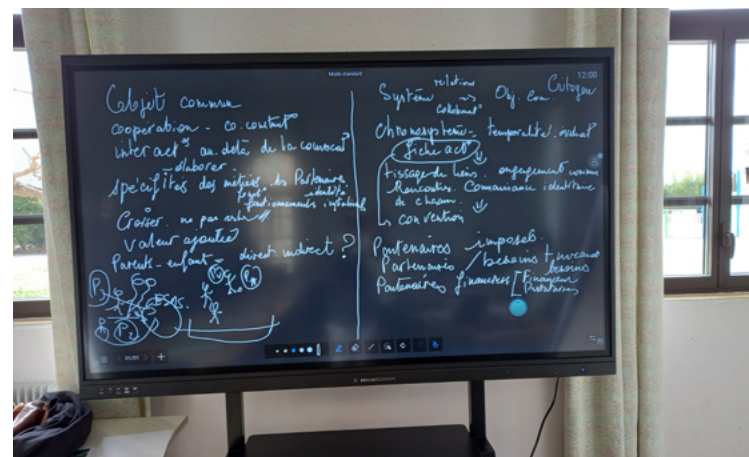 Mode standard
12:00
Objet commun
coopération - co. construct°
interact°s au delà de la
élaborer
spécificités des métiers. des Partenaires
identité
fonctionnements
Croiser. ne pas
valeur ajoutée
Parents - enfant - direct. indirect ?
P1
P2
01/01
relations
Système => Obj. Com. Citoyen
Chronosystème - temporalité.
fiche act°
tissage de liens. engagement commun
Rencontres. Connaissance identitaire
de chacun.
convention
Partenaires imposés.
Partenaires / besoins + nouveaux
besoins
Partenaires financiers [ Financeur
Prestataires